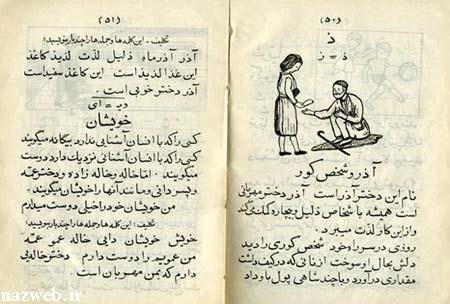 (۵۰)
ذ
ذ = ز
آذر و شخص کور
نام این دختر آذر است آذر دختر مهربانی
است همیشه با شخاص ذلیل و بیچاره کمک میکند
و از این کار لذت میبرد
روزی در سر راه خود شخص کوری را دید
دلش بحال او سوخت از غذائی که در کیف داشت
مقداری درآورد و با چند شاهی پول باو داد
(۵۱)
تکلیف - این کلمه ها و جمله ها را چند بار بنویسید:
آذر آذرماه ذلیل لذت لذیذ کاغذ
این غذا لذیذ است این کاغذ سفید است
آذر دختر خوبی است .
خویشان
کسی را که با انسان آشنائی ندارد بیگانه میگویند
کسی را که با انسان آشنائی نزدیک دارد دوست
میگویند . امّا خاله و خاله زاده و دختر عمّه
و پسر دائی و مانند آنها را خویشان میگویند .
من خویشان خود را خیلی دوست میدارم
تکلیف: این کلمه ها و جمله ها را چند بار بنویسید:
خویش خویشان دایی خاله عمو عمّه
من عمویم را دوست دارم دختر خاله یی
دارم که بمن مهربان است .
nazweb.ir